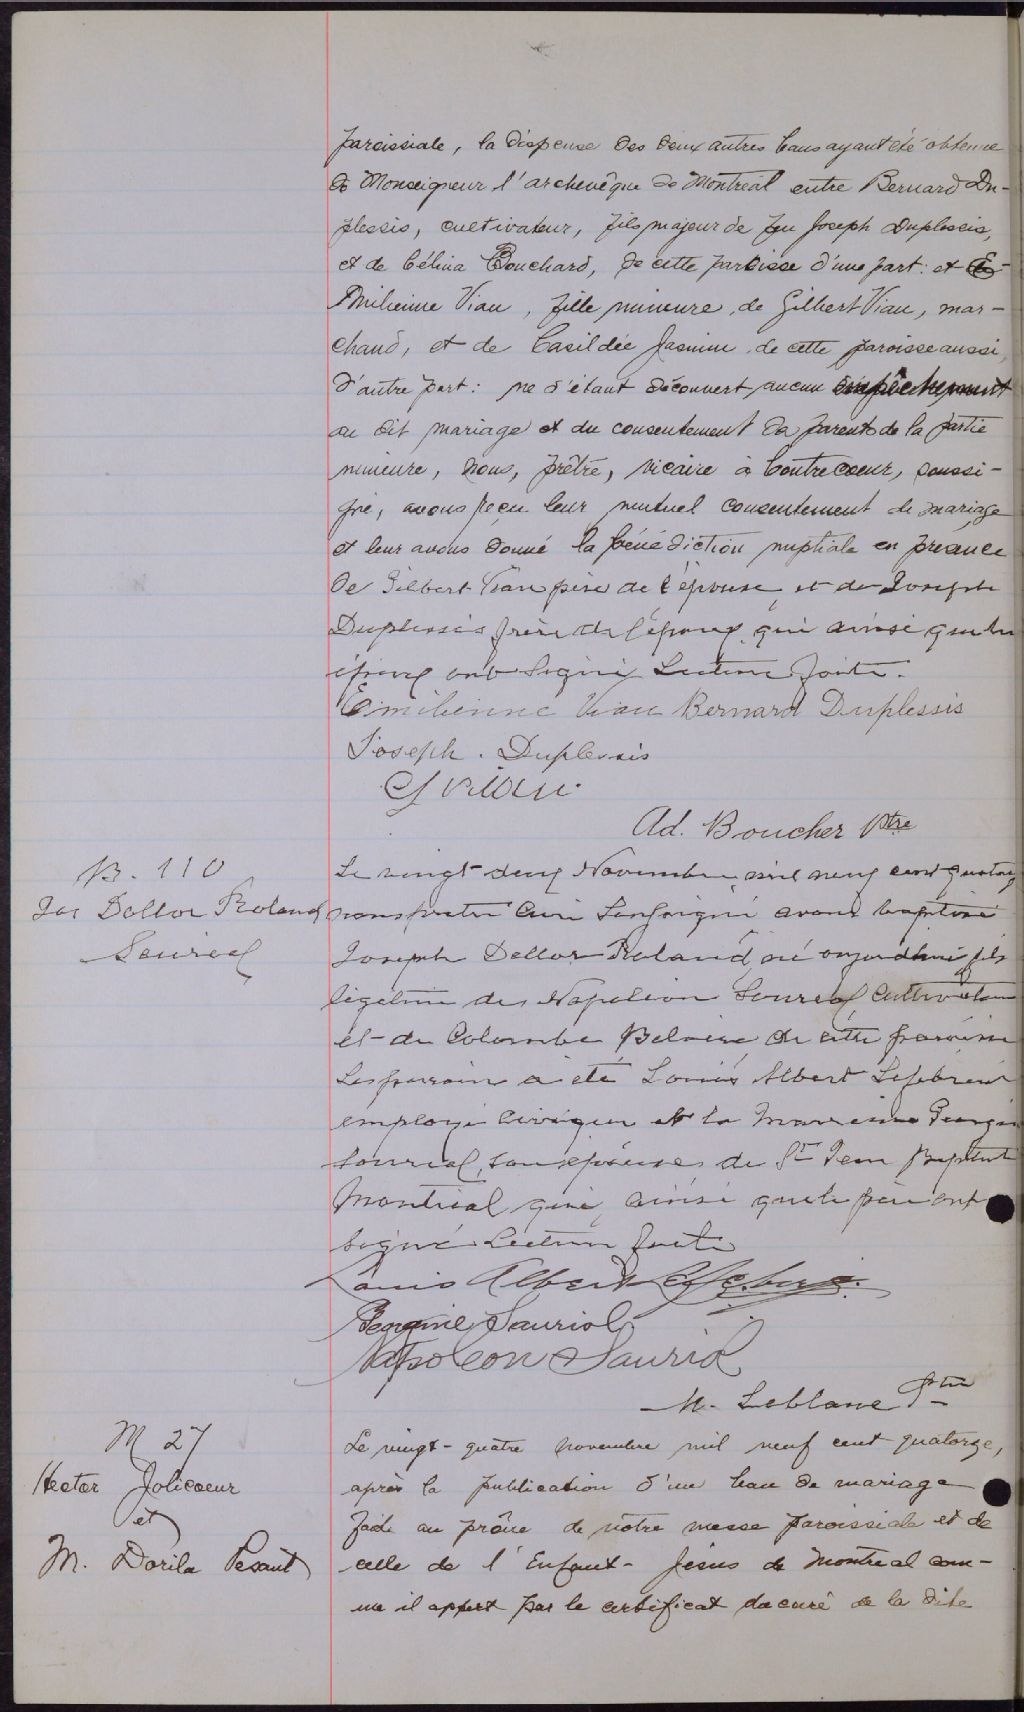 paroissiale, la dispense des deux autres bans ayant été obtenue
de Monseigneur l'archevêque de Montréal entre Bernard Du-
plessis, cultivateur, fils majeur de feu Joseph Duplessis,
et de Célina Bouchard, de cette paroisse d'une part: et E-
milienne Viau, fille mineure, de Gilbert Viau, mar-
chand, et de Casildée Jasmin de cette paroisse aussi
d'autre part: ne s'étant découvert aucun empêchement
au dit mariage et du consentement des parents de la partie
mineure, nous, prêtre, vicaire à Contrecoeur, soussi-
gné, avons reçu leur mutuel consentement de mariage
et leur avons donné la bénédiction nuptiale en présence
de Gilbert Viau père de l'épouse, et de Joseph
Duplessis frère de l'époux qui ainsi que les
époux ont signé Lecture faite.
Emilienne Viau Bernard Duplessis
Joseph . Duplessis
G Viau
Ad. Boucher Ptre
B. 110
Jos Dollor Roland
Sauriol
Le vingt deux Novembre mil neuf cent quatorze
nous prêtre curé soussigné avons baptisé
Joseph Dollor Roland né aujourd'hui fils
légitime de Napoléon Sauriol Cultivateur
et de Colombe Belaire de cette paroisse
Les parrain a été Louis Albert Lefebvre
employé civique et la Marraine Georgine
Sauriol, son épouse de St Jean Baptiste
Montréal qui ainsi que le père ont
signé Lecture faite
Louis Albert Lefebvre
Georgine Sauriol
Napoleon Sauriol
M. Leblanc Ptre
M 27
Hector Jolicoeur
et
M. Dorila Pesant
Le vingt-quatre novembre mil neuf cent quatorze,
après la publication d'un ban de mariage
faite au prône de nôtre messe paroissiale et de
celle de l'Enfant-Jésus de Montréal com-
me il appert par le certificat du curé de la dite